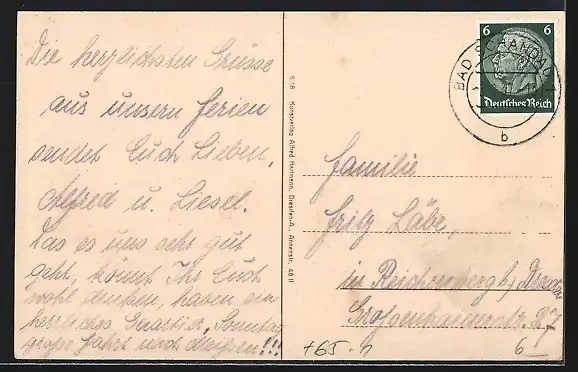 Die herzlichsten Grüsse
aus unsern Ferien
sendet Euch Lieben,
Alfred u. Liesel.
Das es uns sehr gut
geht, könnt Ihr Euch
wohl denken, haben ein
herrliches Quartier, Sonntag
große Fahrt nach Meißen!!!
878 Kunstverlag Alfred Hartmann, Dresden-A., Annenstr. 48 II
6 6
Deutsches Reich
BAD SCHANDAU
b
Familie
Fritz Läbe,
in Reichenberg b/ Dresden
Großenhainerstr. 27
6